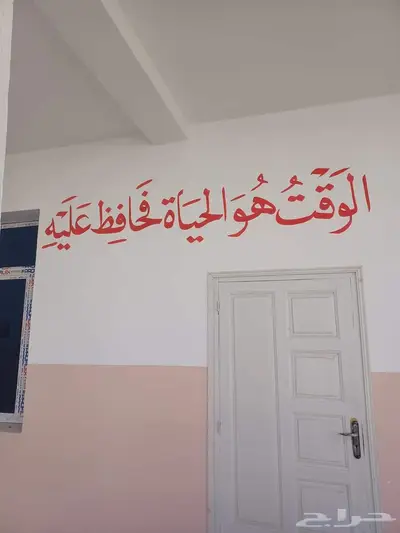 الوَقْتُ هُوَ الحَيَاة فَحَافِظ عَلَيْهِ
حراج